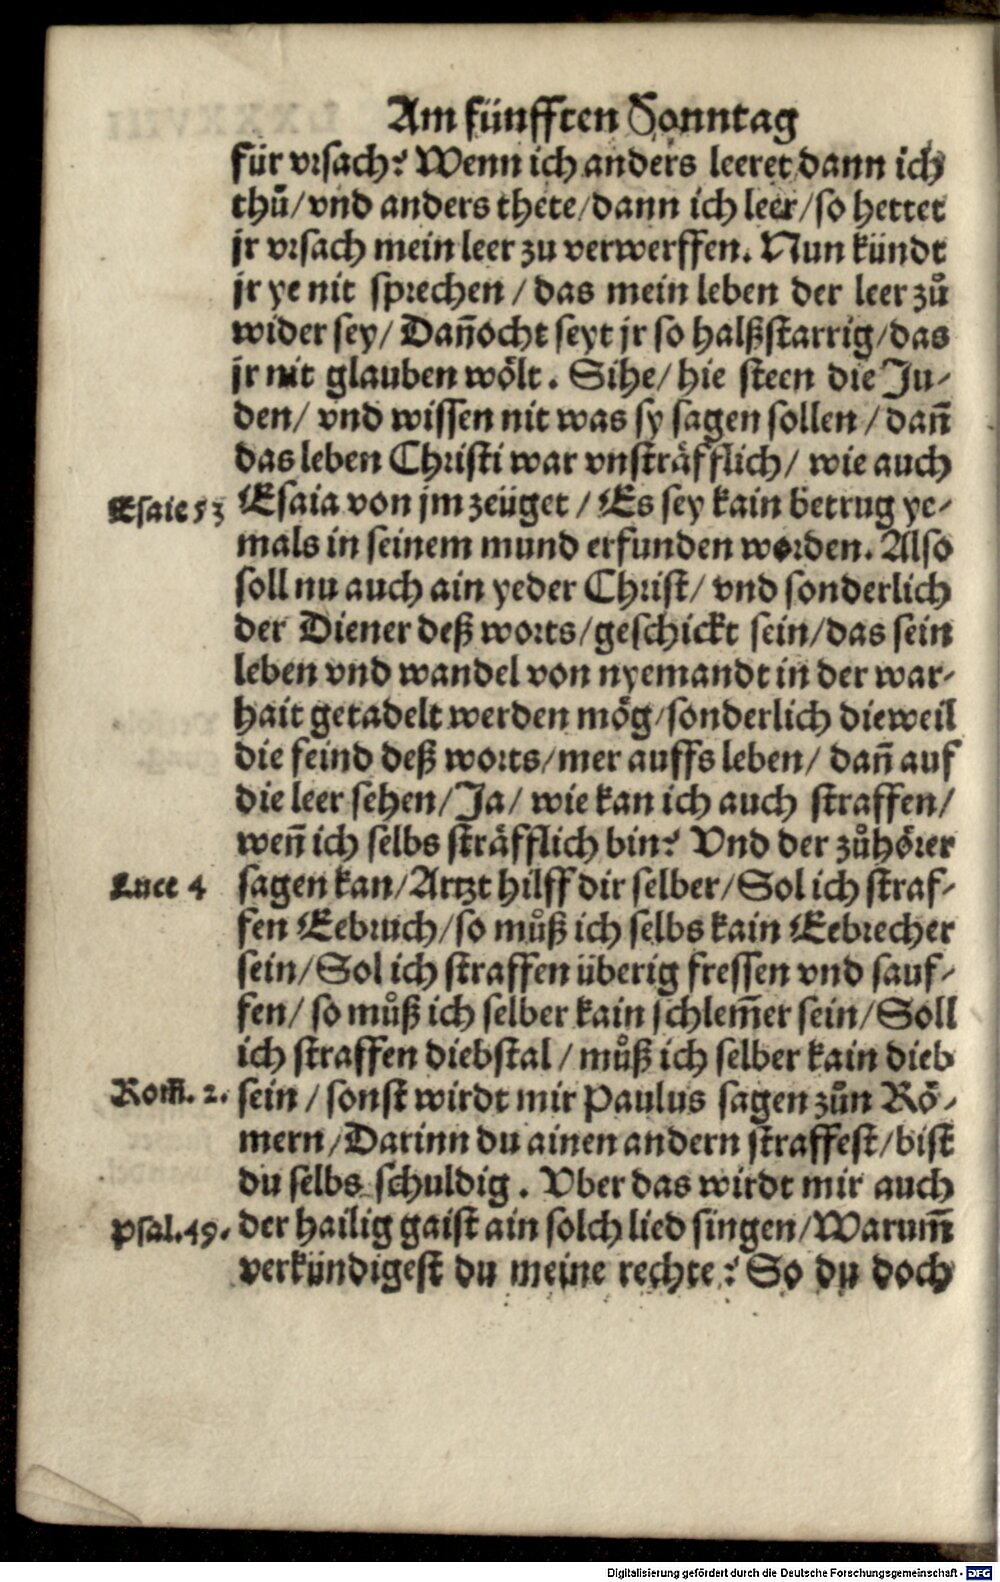 Am fünfften Sonntag
für vrsach? Wenn ich anders leeret dann ich
thů/ vnd anders thete/ dann ich leer/ so hettet
jr vrsach mein leer zu verwerffen. Nun kündt
jr ye nit sprechen/ das mein leben der leer zů
wider sey/ Dañocht seyt jr so halßstarrig/ das
jr nit glauben wölt. Sihe/ hie steen die Ju-
den/ vnd wissen nit was sy sagen sollen/ dañ
das leben Christi war vnsträfflich/ wie auch
Esaie 53 Esaia von jm zeüget/ Es sey kain betrug ye-
mals in seinem mund erfunden worden. Also
soll nu auch ain yeder Christ/ vnd sonderlich
der Diener deß worts/ geschickt sein/ das sein
leben vnd wandel von nyemandt in der war-
hait getadelt werden mög/ sonderlich dieweil
die feind deß worts/ mer auffs leben/ dañ auf
die leer sehen/ Ja/ wie kan ich auch straffen/
weñ ich selbs sträfflich bin? Vnd der zůhörer
Luce 4 sagen kan/ Artzt hilff dir selber/ Sol ich straf-
fen Eebruch/ so můß ich selbs kain Eebrecher
sein/ Sol ich straffen überig fressen vnd sauf-
fen/ so můß ich selber kain schlem̃er sein/ Soll
ich straffen diebstal/ můß ich selber kain dieb
Rom̃. 2. sein/ sonst wirdt mir Paulus sagen zůn Rö-
mern/ Darinn du ainen andern straffest/ bist
du selbs schuldig. Vber das wirdt mir auch
Psal. 49. der hailig gaist ain solch lied singen/ Warum̃
verkündigest du meine rechte? So du doch
Digitalisierung gefördert durch die Deutsche Forschungsgemeinschaft - DFG